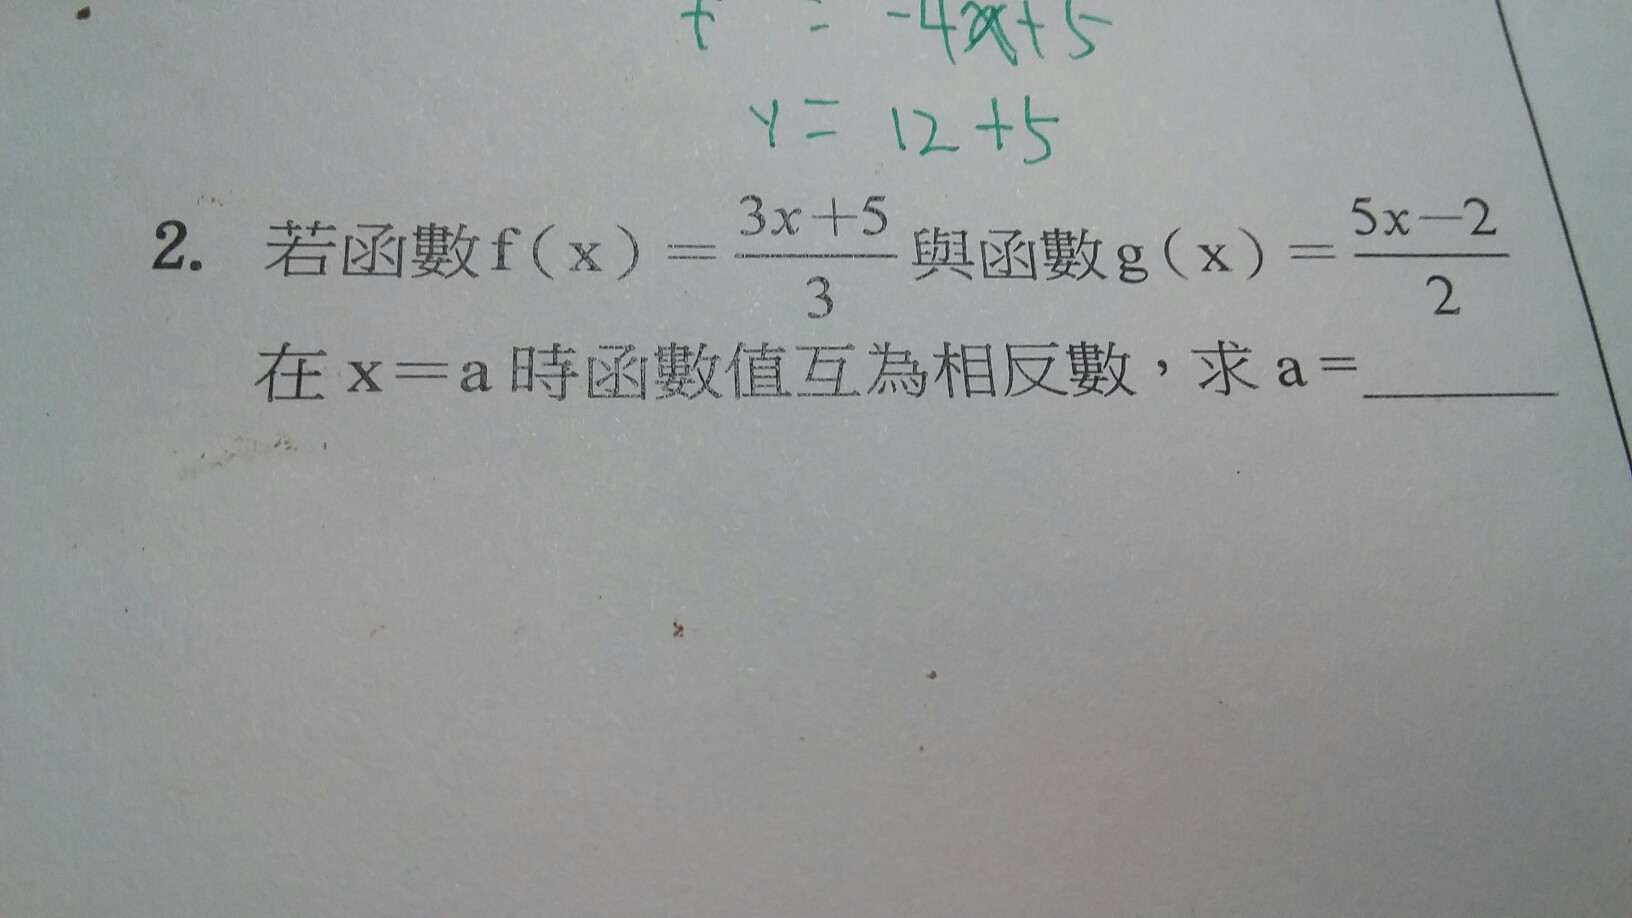 = -4x+5
y = 12+5
2. 若函數f(x)=\frac{3x+5}{3}與函數g(x)=\frac{5x-2}{2}
在x=a時函數值互為相反數,求a=______